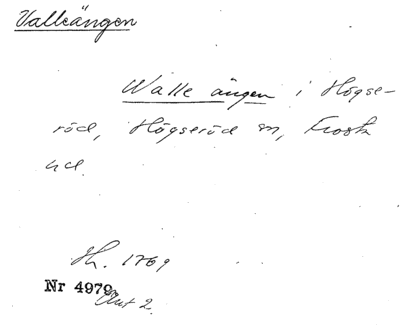 Valleängen
Walle ängen i Högse-
röd, Högseröd sn, Frosta
hd.
Sk. 1769
Nr 4979
Akt 2.